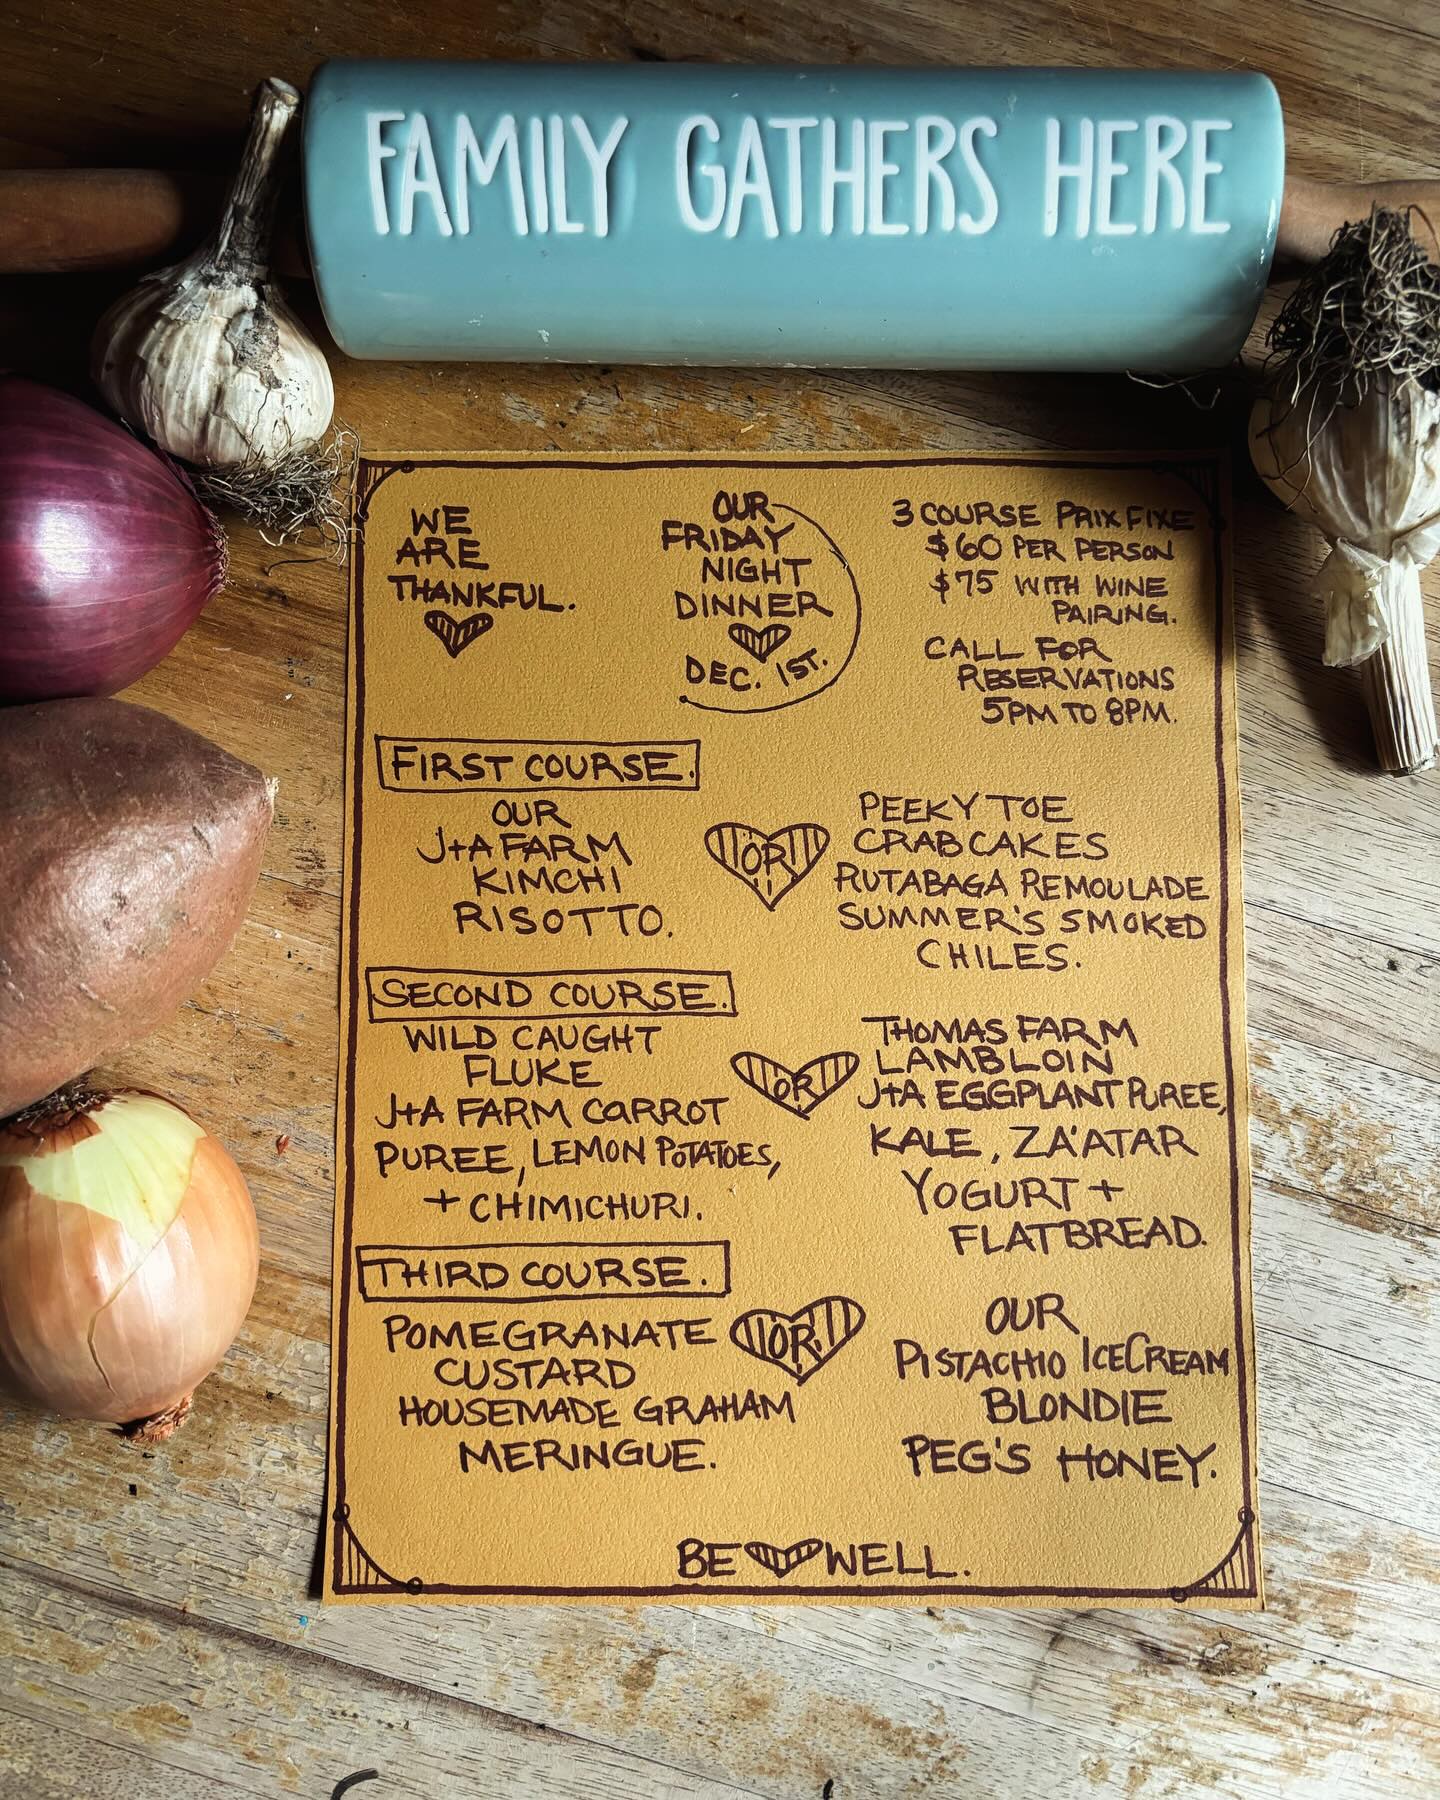 FAMILY GATHERS HERE
WE
ARE
THANKFUL.
OUR
FRIDAY
NIGHT
DINNER
DEC. 1ST.
3 COURSE PRIX FIXE
$60 PER PERSON
$75 WITH WINE
PAIRING.
CALL FOR
RESERVATIONS
5PM TO 8PM.
FIRST COURSE.
OUR
J+A FARM
KIMCHI
RISOTTO.
OR
PEEKY TOE
CRABCAKES
RUTABAGA REMOULADE
SUMMER'S SMOKED
CHILES.
SECOND COURSE.
WILD CAUGHT
FLUKE
J+A FARM CARROT
PUREE, LEMON POTATOES,
+ CHIMICHURI.
OR
THOMAS FARM
LAMB LOIN
J+A EGGPLANT PUREE,
KALE, ZA'ATAR
YOGURT +
FLATBREAD.
THIRD COURSE.
POMEGRANATE
CUSTARD
HOUSEMADE GRAHAM
MERINGUE.
OR
OUR
PISTACHIO ICECREAM
BLONDIE
PEG'S HONEY.
BE WELL.